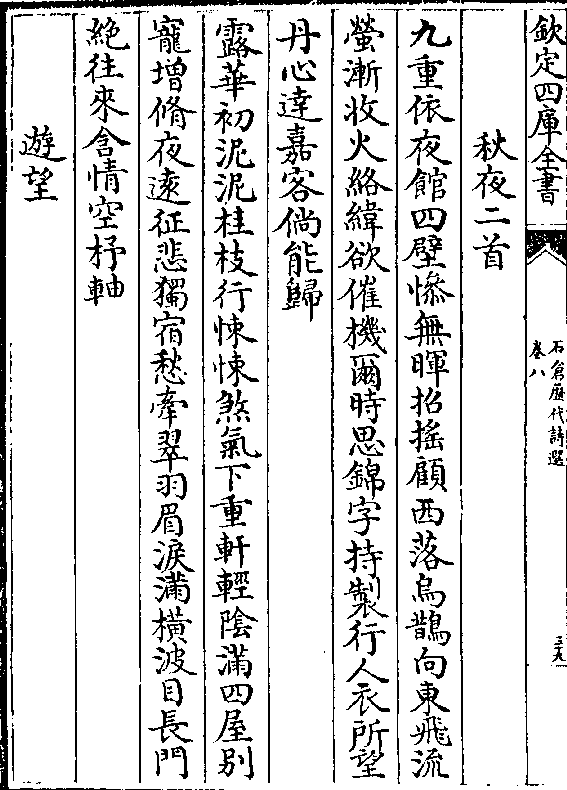 欽定四庫全書
石倉歷代詩選
卷八
三九
秋夜二首
九重依夜館四壁慘無暉招搖顧西落烏鵲向東飛流
螢漸收火絡緯欲催機爾時思錦字持製行人衣所望
丹心達嘉客倘能歸
露華初泥泥桂枝行悚悚煞氣下重軒輕陰滿四屋别
寵增脩夜遠征悲獨宿愁牽翠羽眉淚滿橫波目長門
絶往來含情空杼軸
遊望